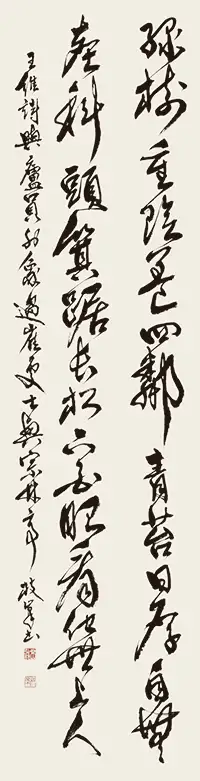 綠樹重陰蓋四鄰青苔日厚自無
塵科頭箕踞長松下白眼看他世上人
王維詩與盧員外象過崔處士興宗林亭書